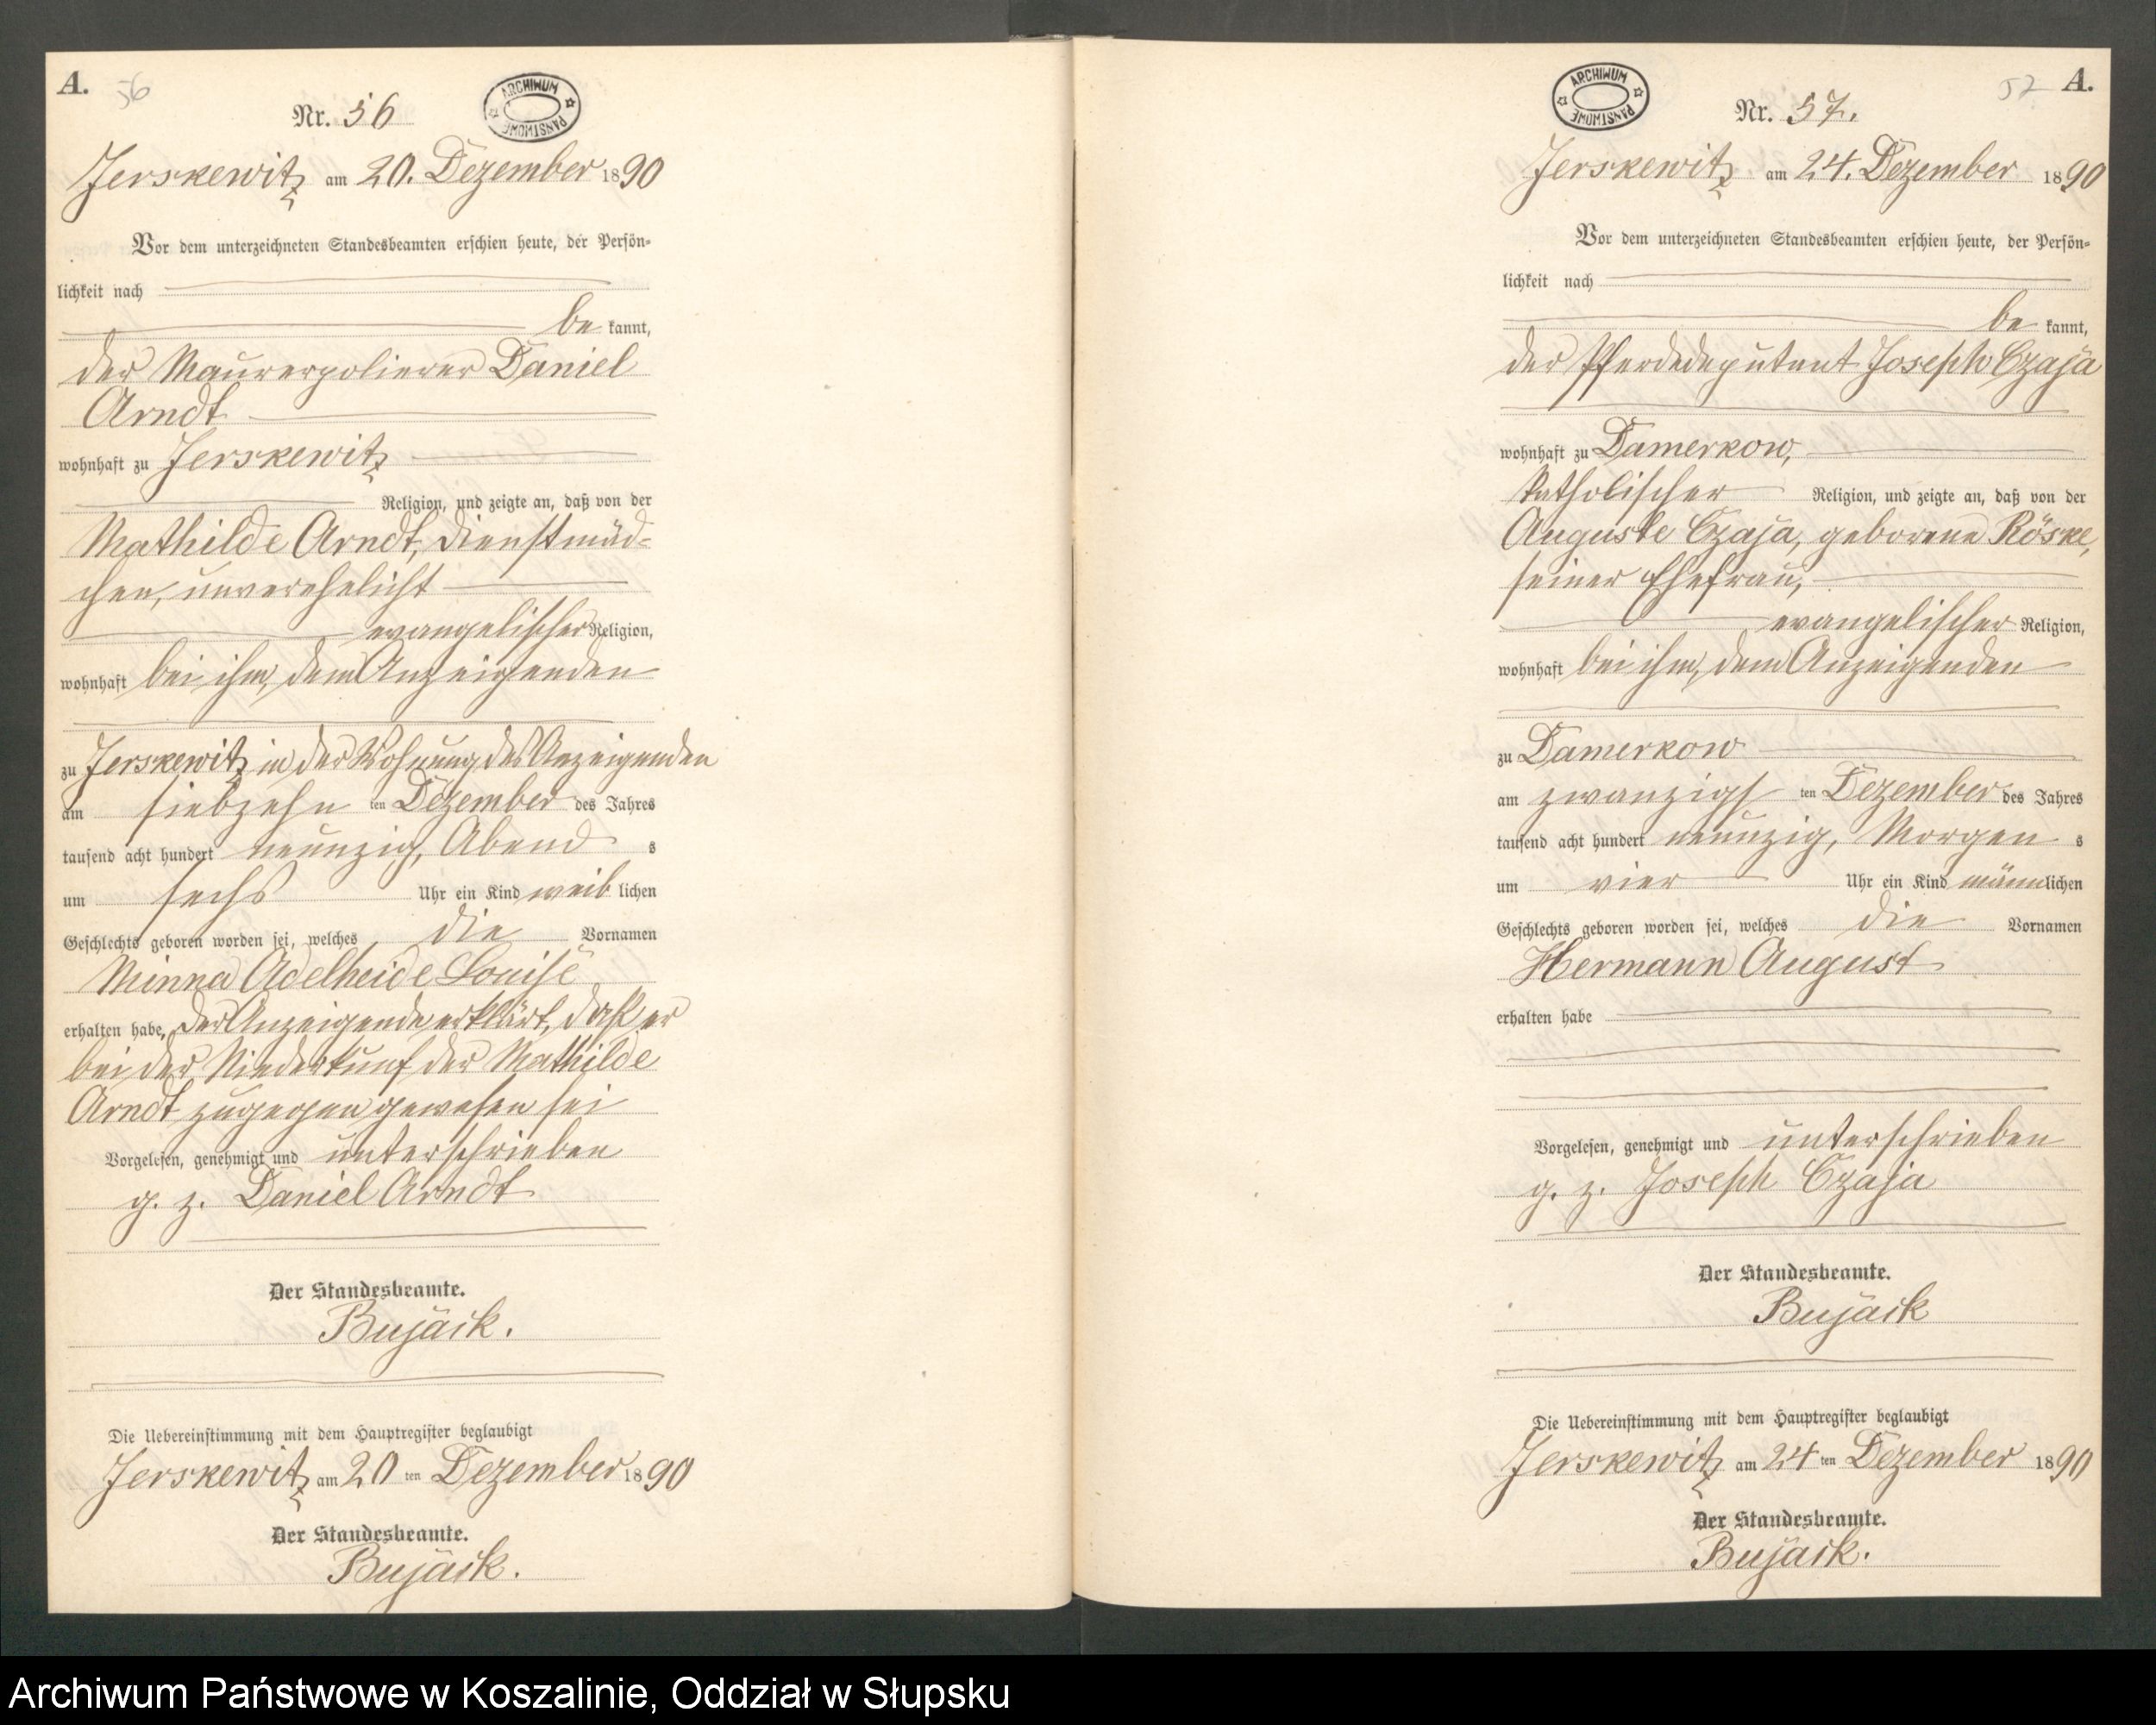 A. 56
Nr. 56
ARCHIWUM PAŃSTWOWE
Jerskewitz am 20. Dezember 1890
Vor dem unterzeichneten Standesbeamten erschien heute, der Persön-
lichkeit nach
be kannt,
der Maurerpolierer Daniel
Arndt
wohnhaft zu Jerskewitz
Religion, und zeigte an, daß von der
Mathilde Arndt, Dienstmäd-
chen, unverehelicht
evangelischer Religion,
wohnhaft bei ihm, dem Anzeigenden
zu Jerskewitz in der Wohnung des Anzeigenden
am siebzehn ten Dezember des Jahres
tausend acht hundert neunzig, Abend s
um sechs Uhr ein Kind weib lichen
Geschlechts geboren worden sei, welches die Vornamen
Minna Adelheide Louise
erhalten habe, der Anzeigende erklärt, daß er
bei der Niederkunf der Mathilde
Arndt zugegen gewesen sei
Vorgelesen, genehmigt und unterschrieben
g. z. Daniel Arndt
Der Standesbeamte.
Bujäck.
Die Uebereinstimmung mit dem Hauptregister beglaubigt
Jerskewitz am 20 ten Dezember 1890
Der Standesbeamte.
Bujäck.
57 A.
Nr. 57.
ARCHIWUM PAŃSTWOWE
Jerskewitz am 24. Dezember 1890
Vor dem unterzeichneten Standesbeamten erschien heute, der Persön-
lichkeit nach
be kannt,
der Pferdedeputant Joseph Czaja
wohnhaft zu Damerkow,
katholischer Religion, und zeigte an, daß von der
Auguste Czaja, geborene Röske,
seiner Ehefrau,
evangelischer Religion,
wohnhaft bei ihm, dem Anzeigenden
zu Damerkow
am zwanzigs ten Dezember des Jahres
tausend acht hundert neunzig, Morgen s
um vier Uhr ein Kind männlichen
Geschlechts geboren worden sei, welches die Vornamen
Hermann August
erhalten habe
Vorgelesen, genehmigt und unterschrieben
g. z. Joseph Czaja
Der Standesbeamte.
Bujäck
Die Uebereinstimmung mit dem Hauptregister beglaubigt
Jerskewitz am 24 ten Dezember 1890
Der Standesbeamte.
Bujäck.
Archiwum Państwowe w Koszalinie, Oddział w Słupsku